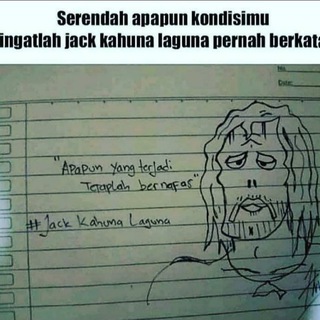 Serendah apapun kondisimu
ingatlah jack kahuna laguna pernah berkata
No.
Date:
"Apapun yang terjadi
Tetaplah bernafas"
#Jack Kahuna Laguna